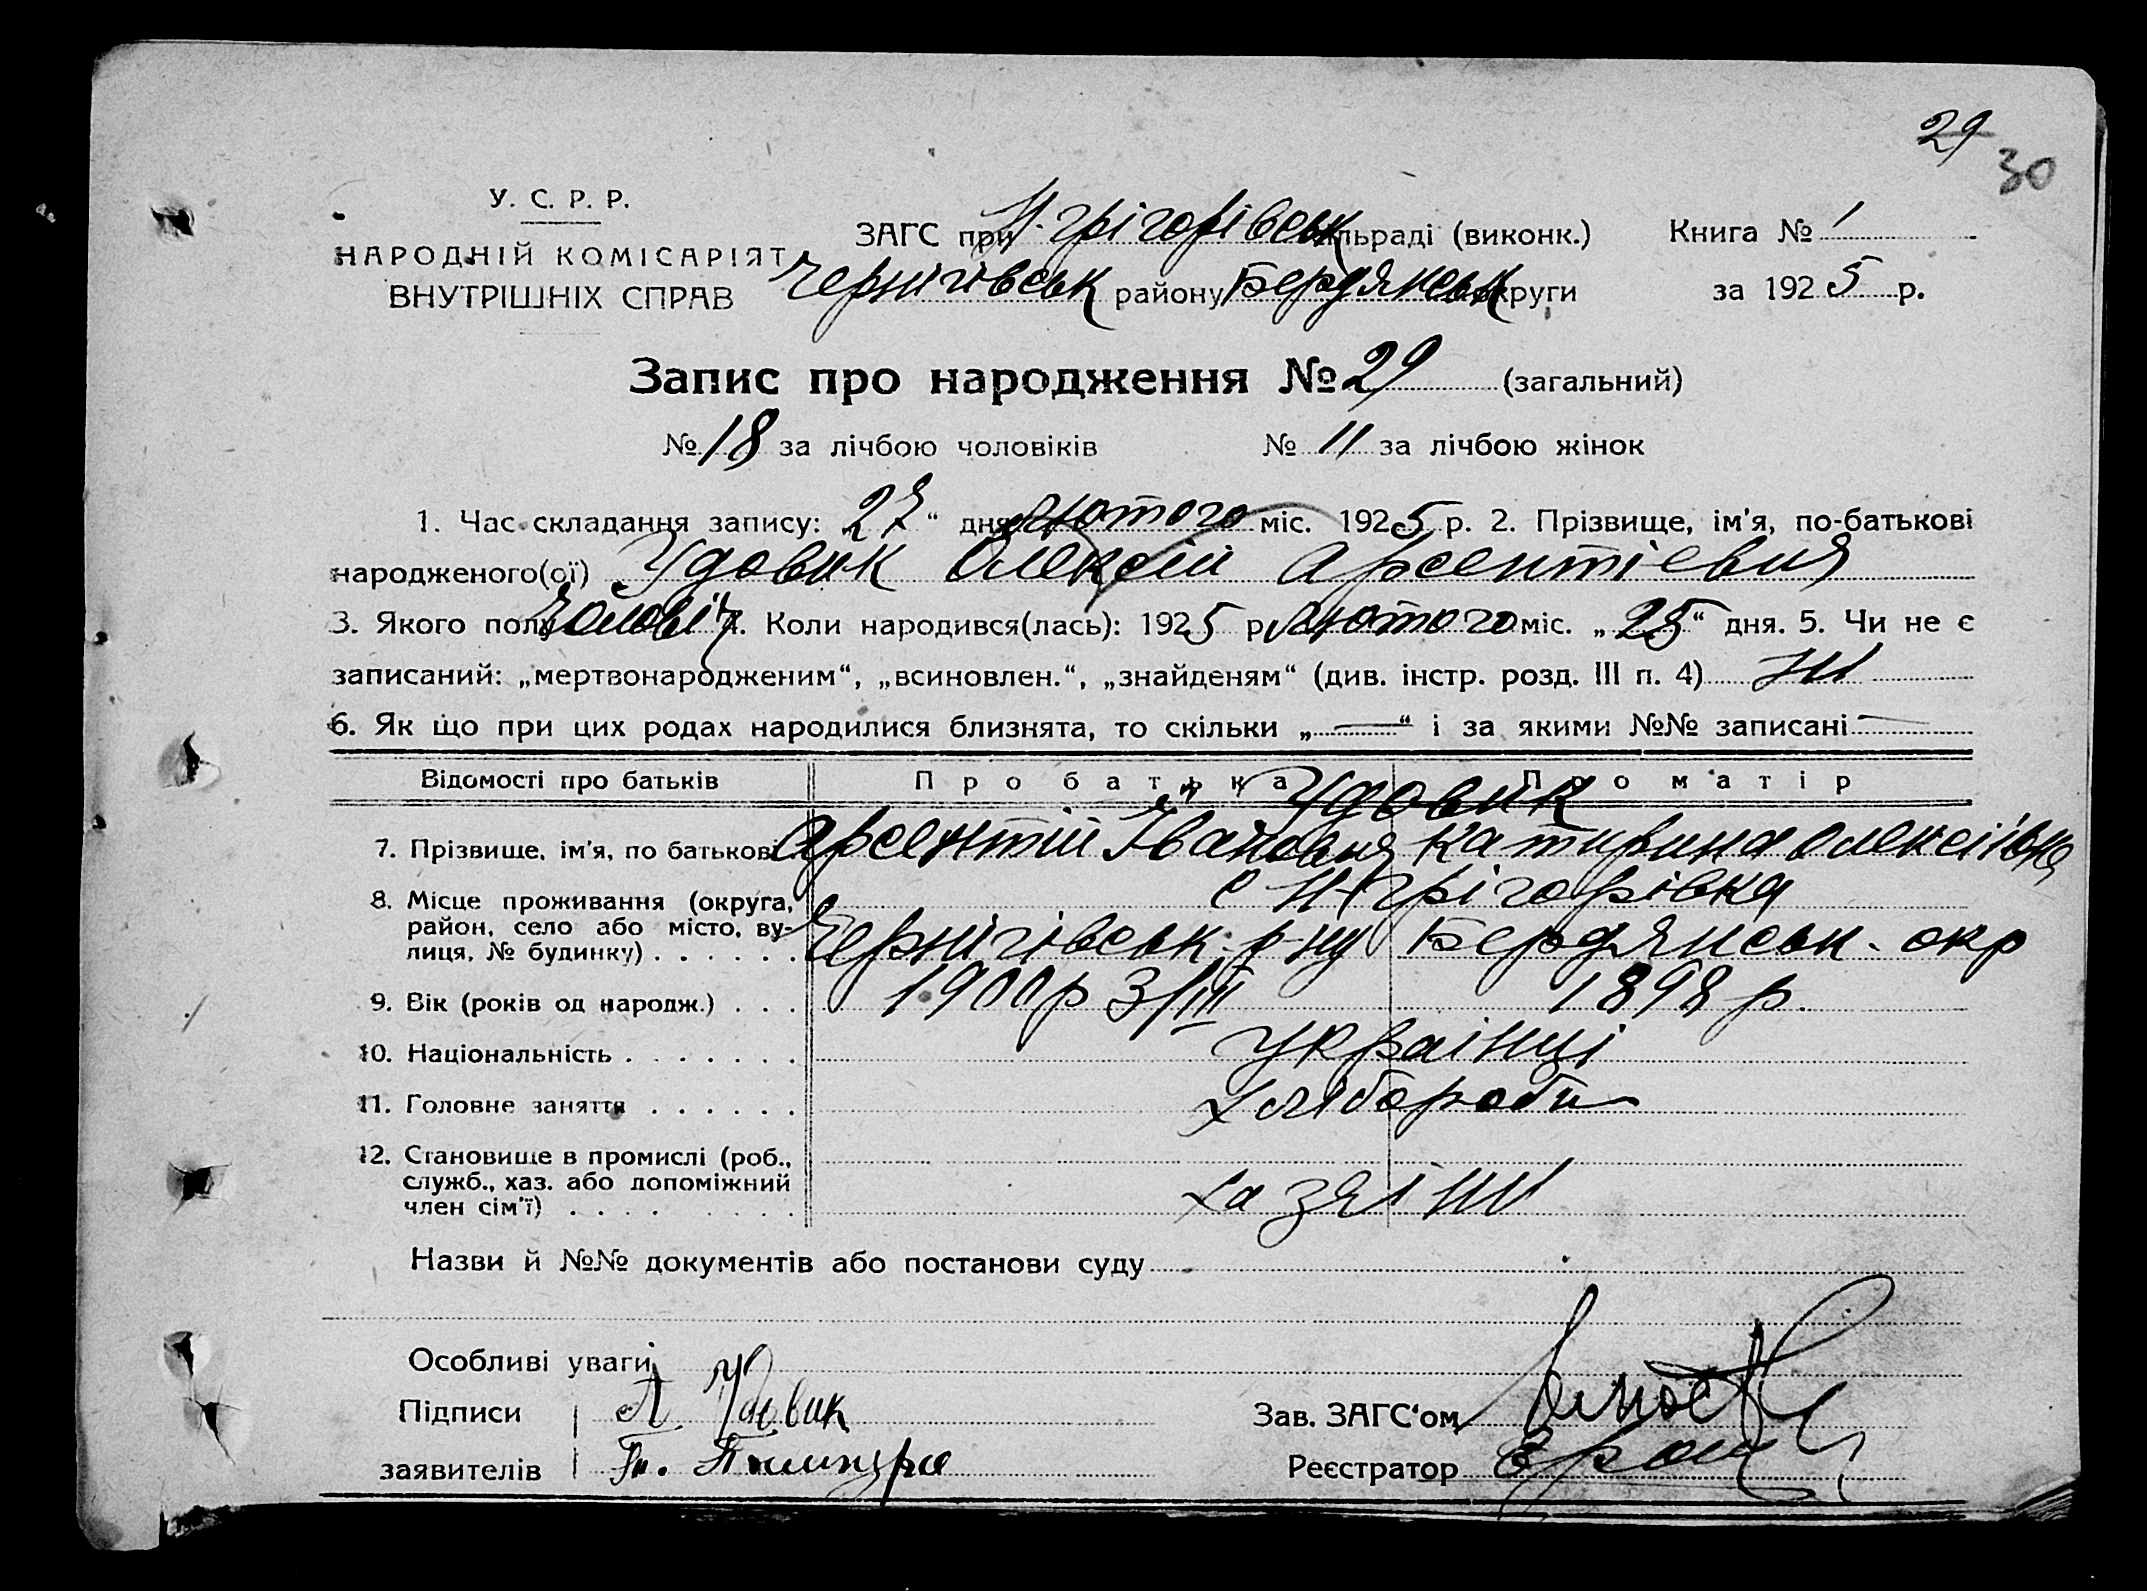 29
30
У. С. Р. Р.
НАРОДНІЙ КОМІСАРІЯТ
ВНУТРІШНІХ СПРАВ
ЗАГС при Н-Грігорівськ сільраді (виконк.)
Чернігівськ району Бердянськ округи
Книга № 1
за 1925 р.
Запис про народження № 29 (загальний)
№ 18 за лічбою чоловіків № 11 за лічбою жінок
1. Час складання запису: 27 “ дня лютого міс. 1925 р. 2. Прізвище, ім'я, по-батькові
народженого(ої) Удовик Олексій Арсентієвич
3. Якого полу чоловіч 4. Коли народився(лась): 1925 р лютого міс. „25“ дня. 5. Чи не є
записаний: „мертвонародженим“, „всиновлен.“, „знайденям“ (див. інстр. розд. III п. 4) ні
6. Як що при цих родах народилися близнята, то скільки „—“ і за якими №№ записані —
Відомості про батьків Про батька Про матір
Удовик
7. Прізвище, ім'я, по батькові Арсентій Іванович Катирина Олексіівна
8. Місце проживання (округа,
район, село або місто, ву-
лиця, № будинку) . . . . . .
с Н-Грігорівка
Чернігівськ р-ну Бердянськ. окр
9. Вік (років од народж.) . . . 1900р 3/III 1898 р.
10. Національність . . . . . . . українці
11. Головне заняття . . . . . . хлібороби
12. Становище в промислі (роб.,
служб., хаз. або допоміжний
член сім'ї) . . . . . . . .
хазяіни
Назви й №№ документів або постанови суду
Особливі уваги
Підписи А. Удовик
заявителів
Зав. ЗАГС'ом
Реєстратор